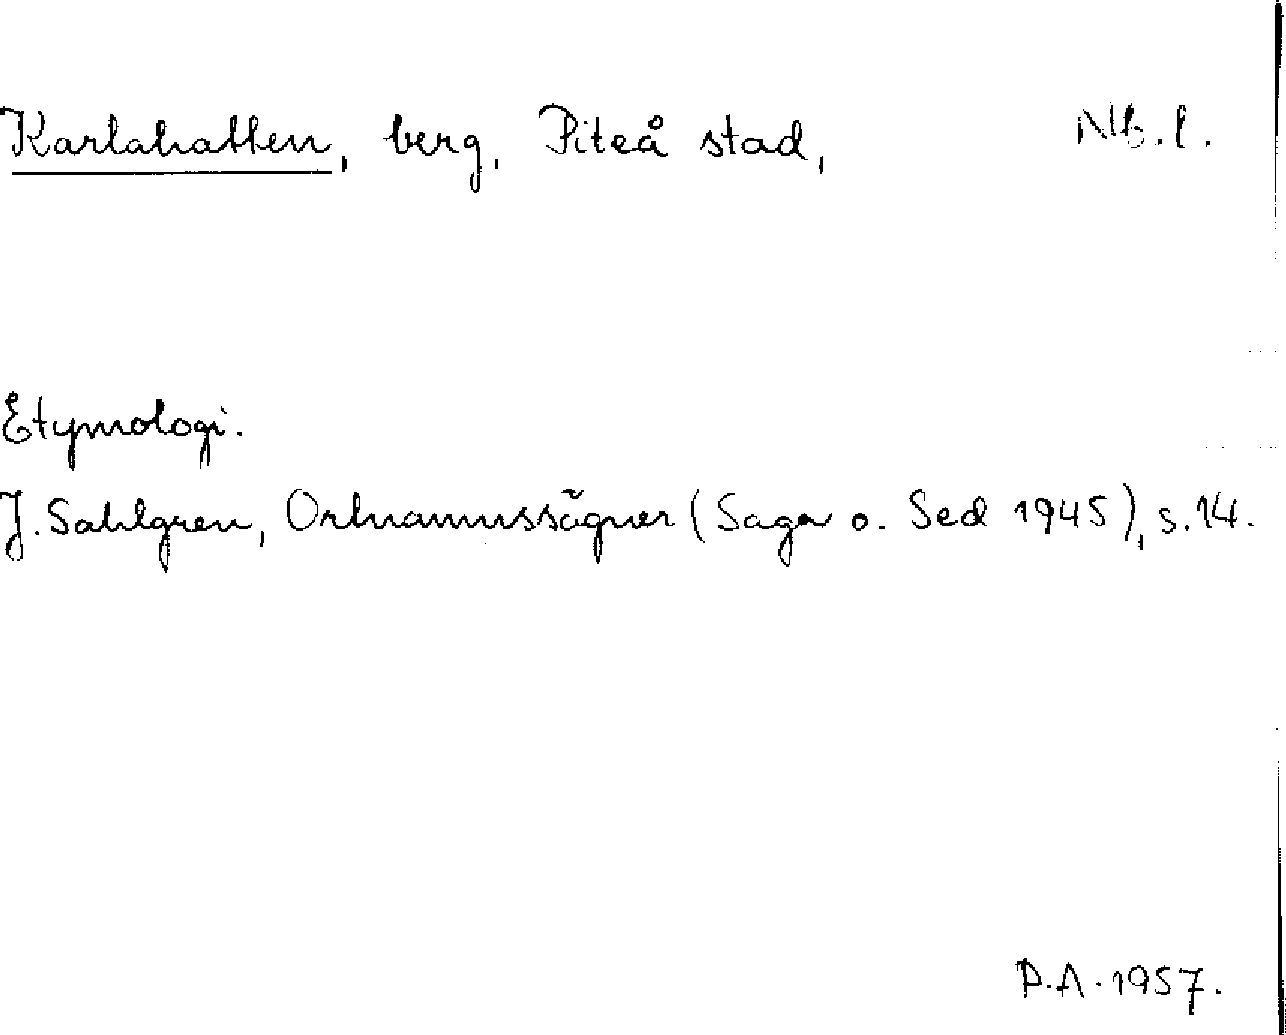 Karlahatten, berg, Piteå stad, Nb.l.
Etymologi.
J. Sahlgren, Ortnamnssägner (Saga o. Sed 1945), s.14.
D.A. 1957.